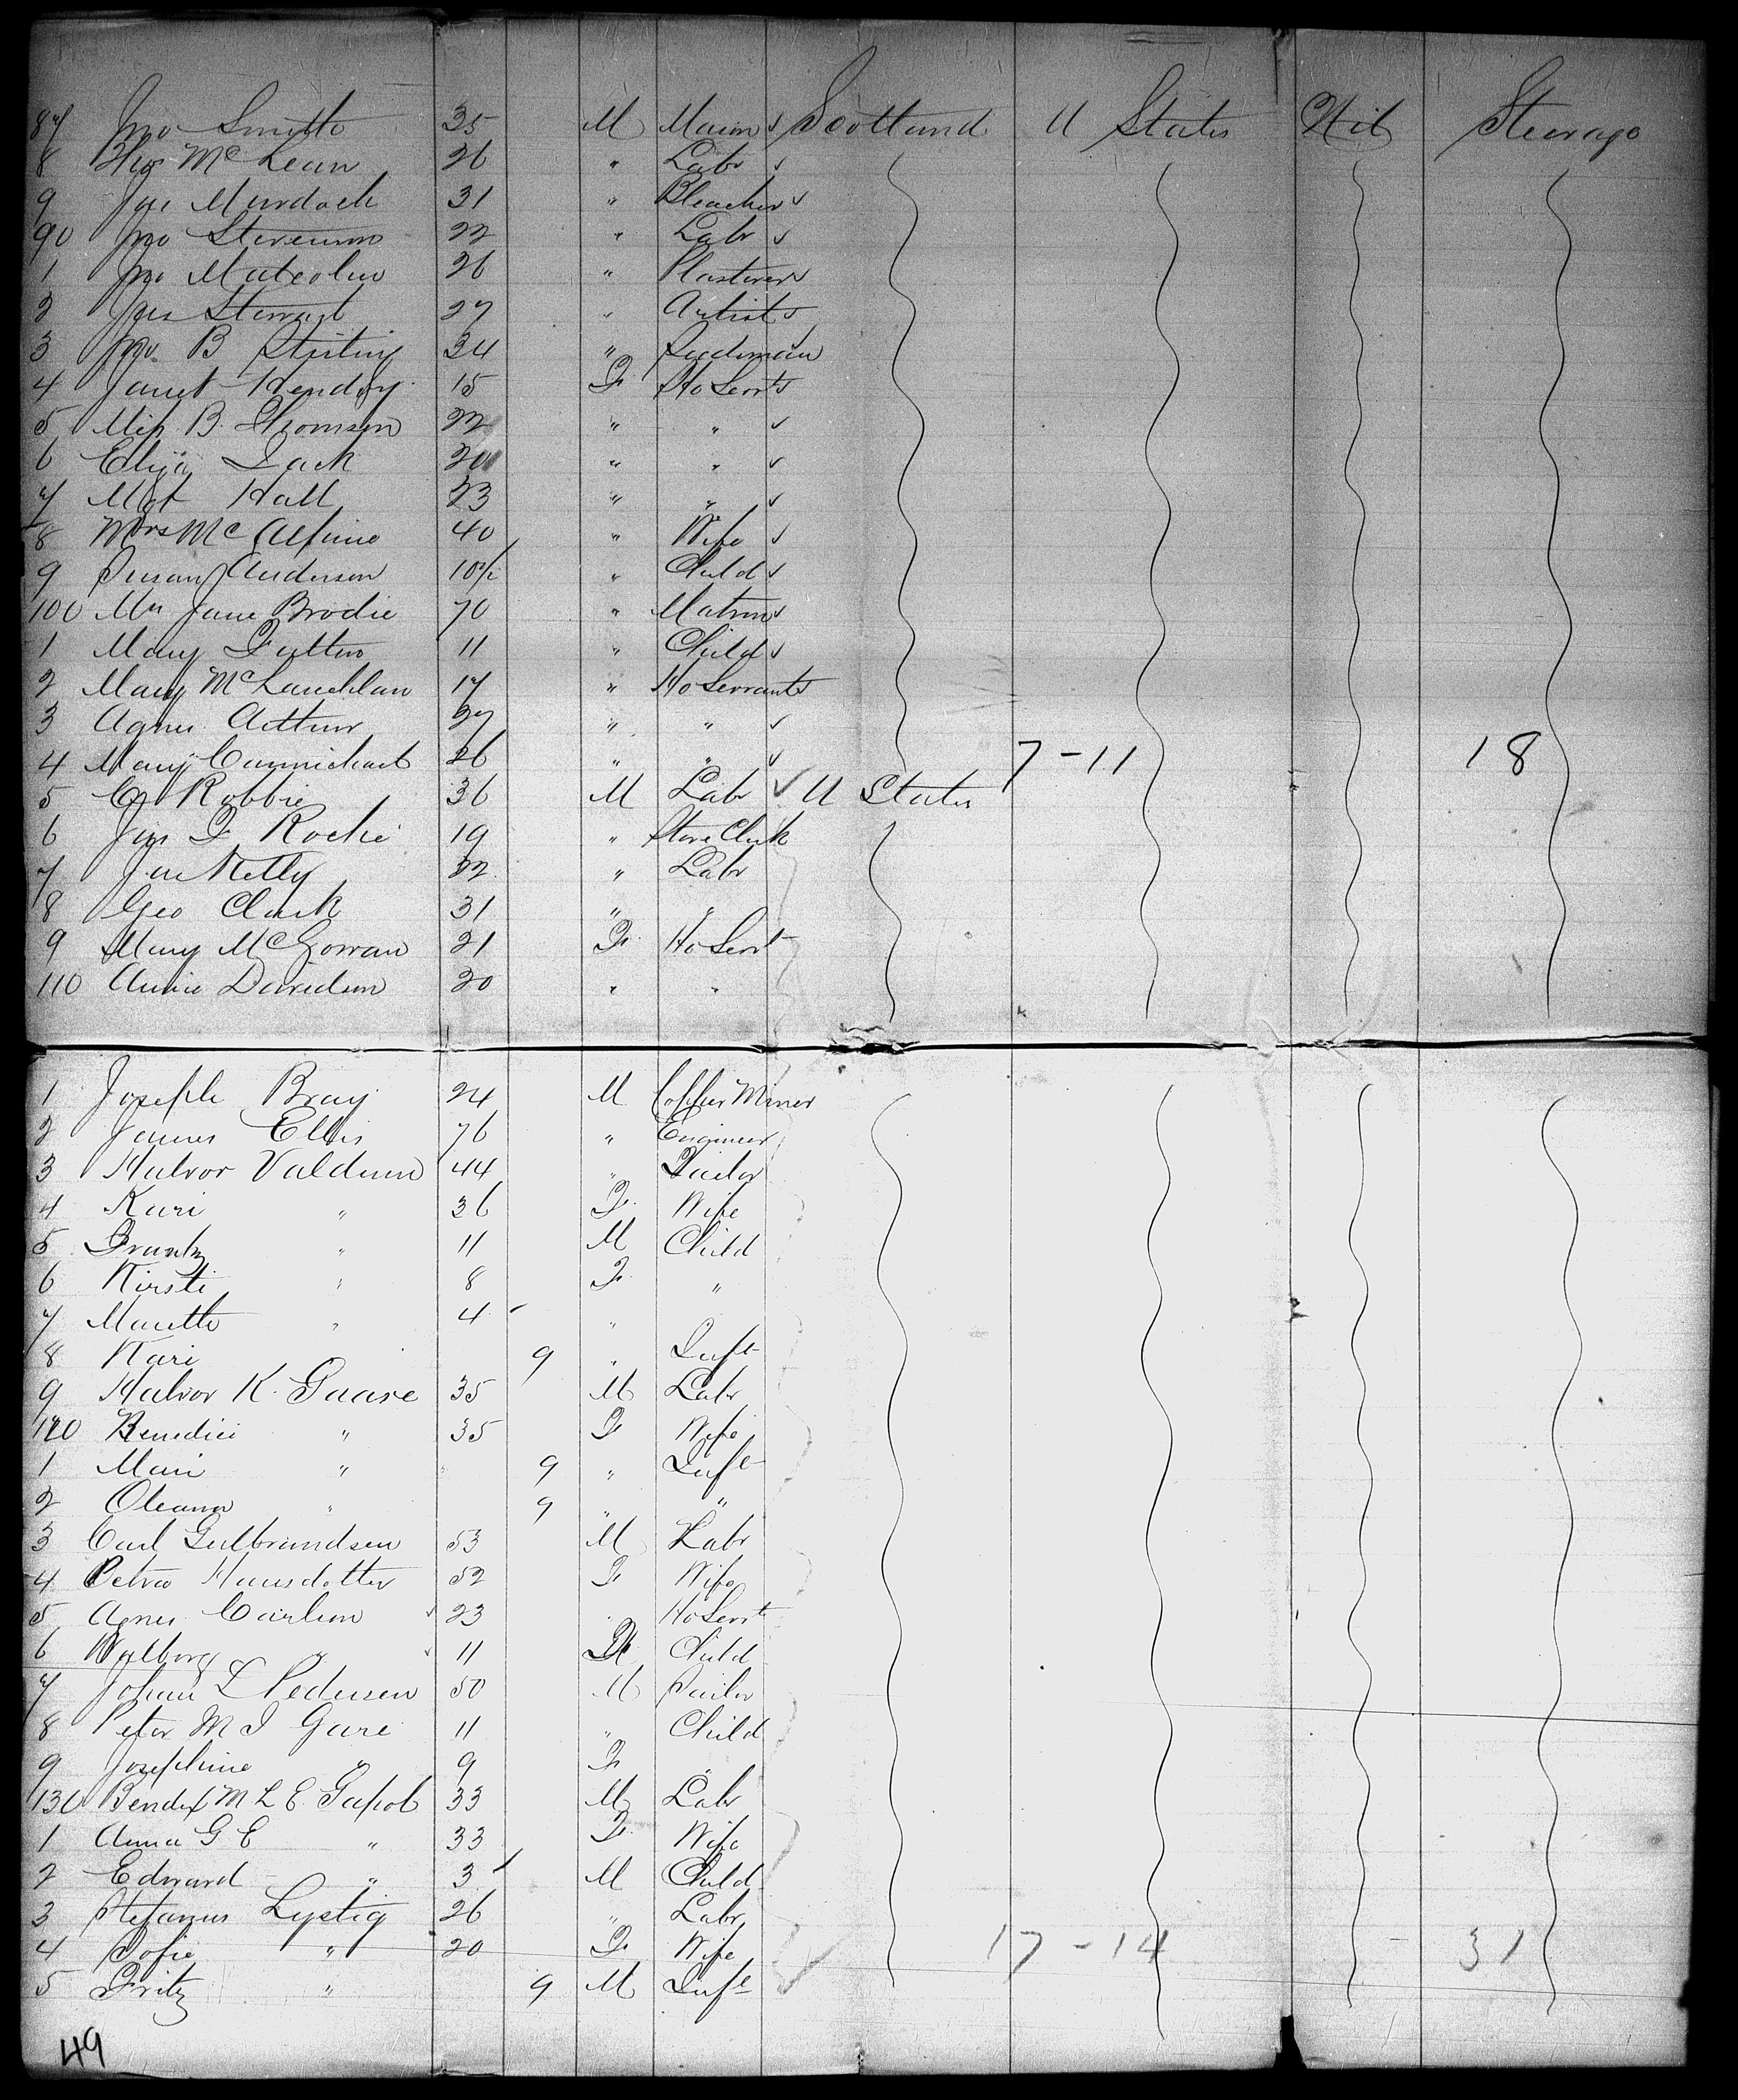 87 Jno Smith 35 M Mason Scotland U States Nil Steerage
8 Thos McLean 26 " Labr
9 Jas Murdoch 31 " Bleacher
90 Jno Stevenson 22 " Labr
1 Jno Malcolm 26 " Plasterer
2 Jas Stewart 27 " Artist
3 Jno B Stirling 34 " Seedsman
4 Janet Hendry 15 F Ho Servt
5 Miss B Thomson 22 " "
6 Eliza Jack 20 " "
7 Mgt Hall 23 " "
8 Mrs McAlpine 40 " Wife
9 Susan Anderson 10 " Child
100 Mrs Jane Brodie 70 " Matron
1 Mary Fulton 11 " Child
2 Mary McLauchlan 17 " Ho Servant
3 Agnes Arthur 27 " "
4 Mary Carmichael 26 " " 7-11 18
5 G Robbie 36 M Labr U States
6 Jas F Roche 19 " Store Clerk
7 Jas Kelly 22 " Labr
8 Geo Clark 31 " "
9 Mary McGowan 21 F Ho Servt
110 Annie Davidson 20 " "
1 Joseph Bray 24 M Copper Miner
2 James Ellis 76 " Engineer
3 Halvor Valdum 44 " Tailor
4 Kari " 36 F Wife
5 Frantz " 11 M Child
6 Kirsti " 8 F "
7 Marthe " 4 "
8 Kari 9 " Inft
9 Halvor K. Gaare 35 M Labr
120 Benedici " 35 F Wife
1 Mari " 9 " Inft
2 Oleana " 9 " "
3 Carl Gulbrandsen 53 M Labr
4 Petra Hansdotter 52 F Wife
5 Agnes Carlson 23 " Ho Servt
6 Walborg " 11 F Child
7 Johan L Pedersen 50 M Sailor
8 Peter M I Gare 11 " Child
9 Josephine " 9 F "
130 Bendix M L E Gapob 33 M Labr
1 Anna G E " 33 F Wife
2 Edward " 3 M Child
3 Stefanus Lystig 26 " Labr
4 Sofie " 20 F Wife 17-14 31
5 Fritz " 9 M Inft
49